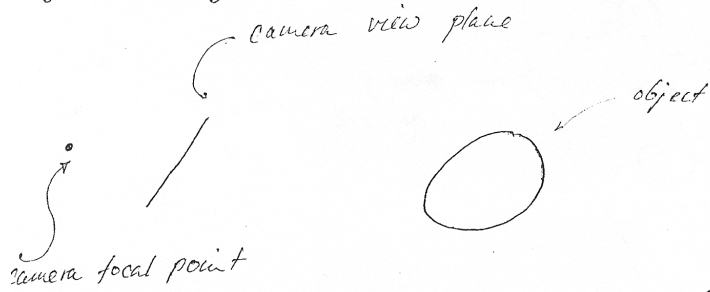 camera view plane
object
camera focal point